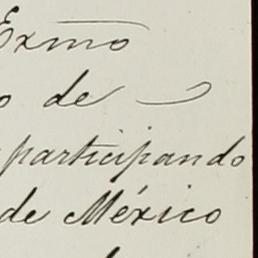 Exmo
o de
participando
de México